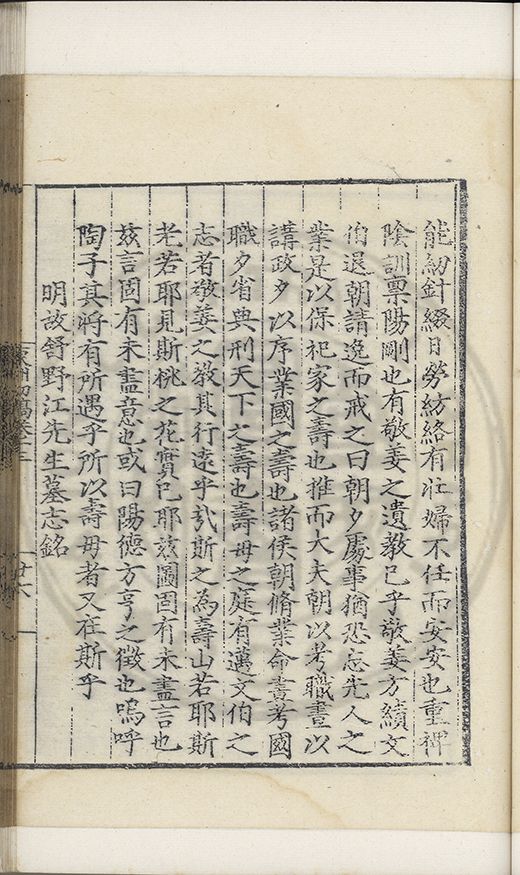 能紉針綴日勞紡絡有壯婦不任而安安也重裨
陰訓禀陽剛也有敬姜之遺教已乎敬姜方績文
伯退朝請逸而戒之曰朝夕處事猶恐忘先人之
業是以保祀家之壽也推而大夫朝以考職晝以
講政夕以序業國之壽也諸侯朝脩業命晝考國
職夕省典刑天下之壽也壽母之庭有邁文伯之
志者敬姜之教其行遠乎哉斯之為壽山若耶斯
老若耶見斯桃之花實已耶玆圖固有未盡言也
玆言固有未盡意也或曰陽德方亨之徵也嗚呼
陶子其將有所遇乎所以壽母者又在斯乎
明故舒野江先生墓志銘
初稿卷三
廿六